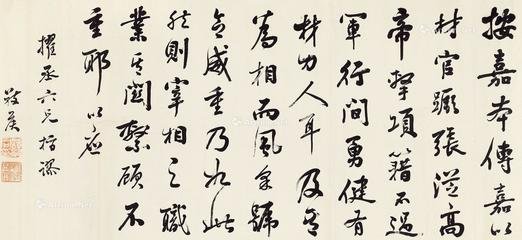 按嘉本傳嘉以
材官蹶張從高
帝擊項籍不過
軍行間勇健有
材力人耳及其
為相而風采號
令威重乃如此
然則宰相之職
業其關繫顧不
重耶 以應
丞六兄